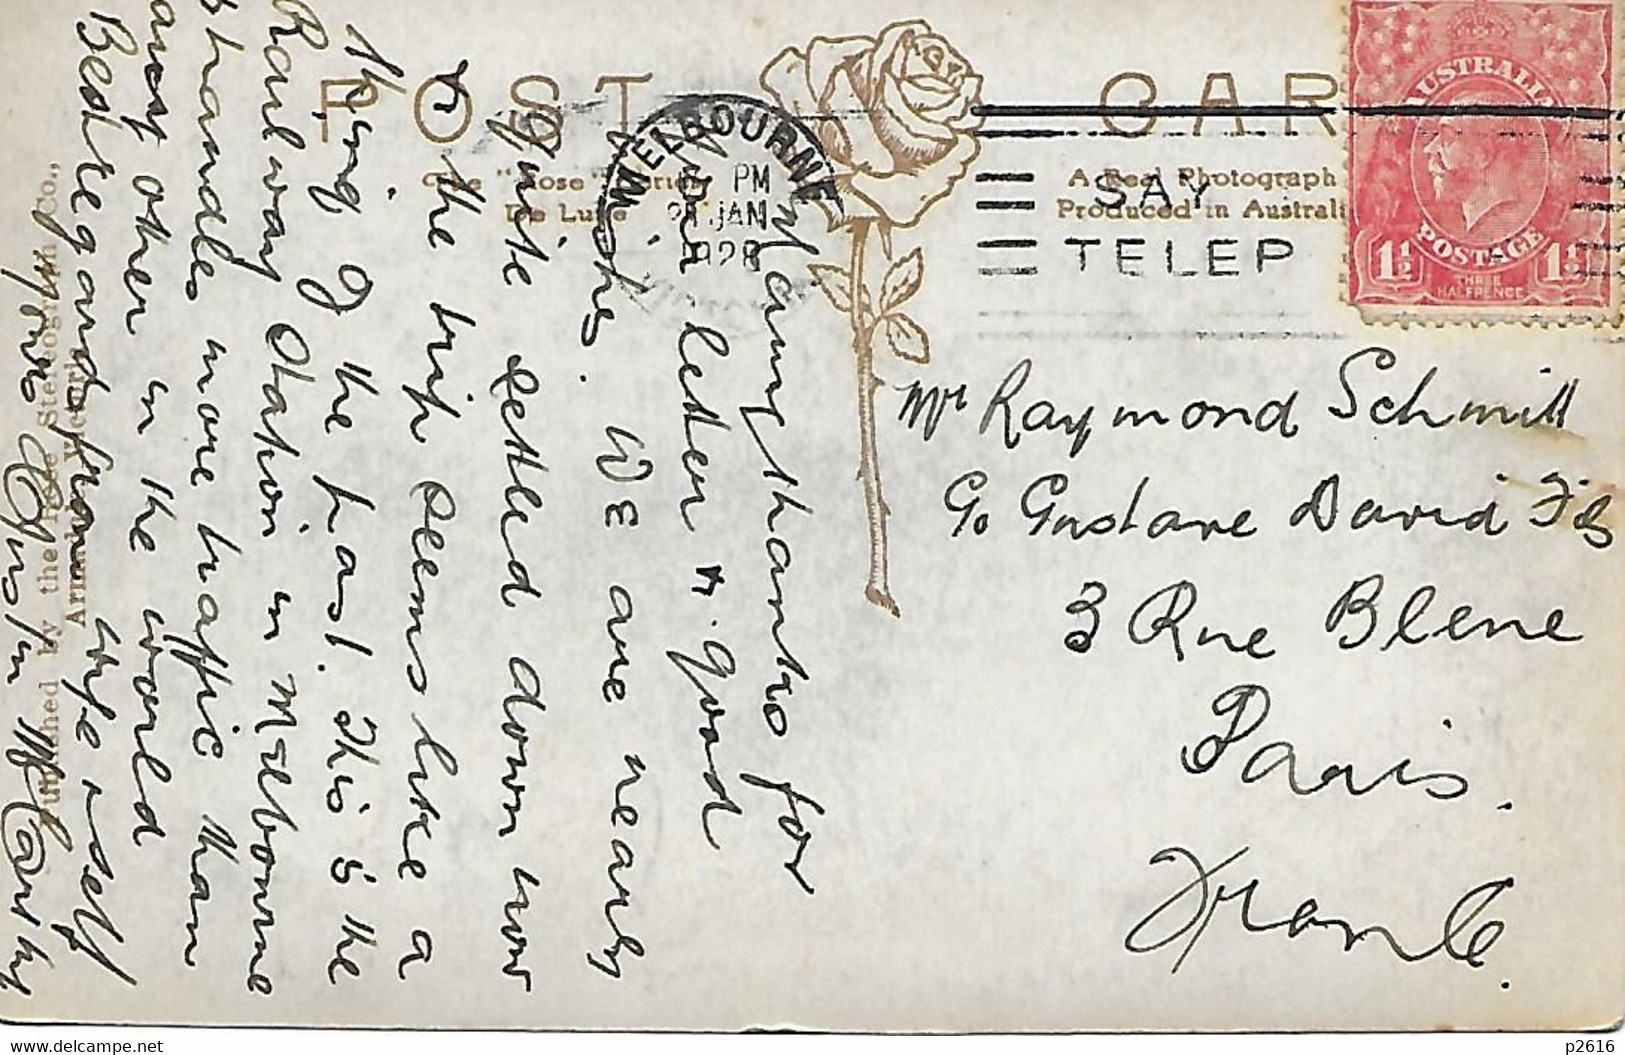 POST CAR
"Rose" Series
De Luxe
A Real Photograph
Produced in Australi
MELBOURNE
PM
JAN
1928
SAY
TELEP
AUSTRALIA
POSTAGE
1½ 1½
THREE
HALFPENCE
Many thanks for
your letter & good
wishes. We are nearly
Quite settled down now
& the trip seems like a
thing of the past. This is the
Railway Station in Melbourne
& handles more traffic than
any other in the world
Best regards from wife & self
Mr Raymond Schmitt
C/o Gustave David Fils
3 Rue Blene
Paris.
France.
Published by the Rose Stereograph Co.,
Armadale, Victoria
www.delcampe.net
p2616